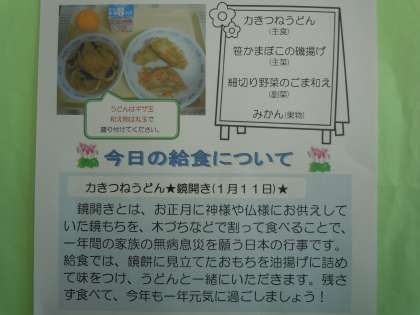 力きつねうどん
(主食)
笹かまぼこの磯揚げ
(主菜)
細切り野菜のごま和え
(副菜)
みかん(果物)
うどんはギザ玉
和え物は丸玉で
盛り付けてください。
今日の給食について
力きつねうどん★鏡開き(1月11日)★
鏡開きとは、お正月に神様や仏様にお供えして
いた鏡もちを、木づちなどで割って食べることで、
一年間の家族の無病息災を願う日本の行事です。
給食では、鏡餅に見立てたおもちを油揚げに詰め
て味をつけ、うどんと一緒にいただきます。残さ
ず食べて、今年も一年元気に過ごしましょう！